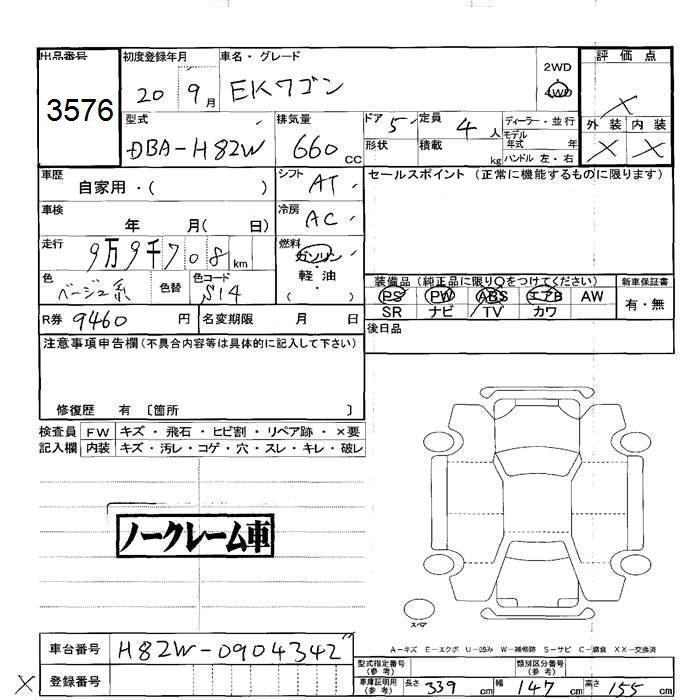 出品番号 初度登録年月 車名・グレード 2WD 評価点
3576 20 9月 EKワゴン 4WD ×
外装 内装
型式 排気量 ドア 5 定員 4人 ディーラー・並行
DBA-H82W 660cc 形状 積載 kg モデル年式 年
ハンドル 左・右 × ×
車歴 自家用・( ) シフト AT セールスポイント (正常に機能するものに限ります)
車検 年 月( 日) 冷房 AC
走行 9万9千708km 燃料 ガソリン
軽・油
( )
色 ベージュ系 色替 色コード S14
装備品 (純正品に限り○をつけてください) 新車保証書
PS PW ABS エアB AW 有・無
SR ナビ TV カワ
R券 9460円 名変期限 月 日 後日品
注意事項申告欄(不具合内容等は具体的に記入して下さい)
修復歴 有 〔箇所 〕
検査員 FW キズ・飛石・ヒビ割・リペア跡・×要
記入欄 内装 キズ・汚レ・コゲ・穴・スレ・キレ・破レ
ノークレーム車
スペア
A-キズ E-エクボ U-凹み W-補修跡 S-サビ C-腐食 XX-交換済
車台番号 H82W-0904342
× 登録番号
型式指定番号(参考) 類別区分番号(参考)
車庫証明用(参考) 長さ 339cm 幅 147cm 高さ 155cm